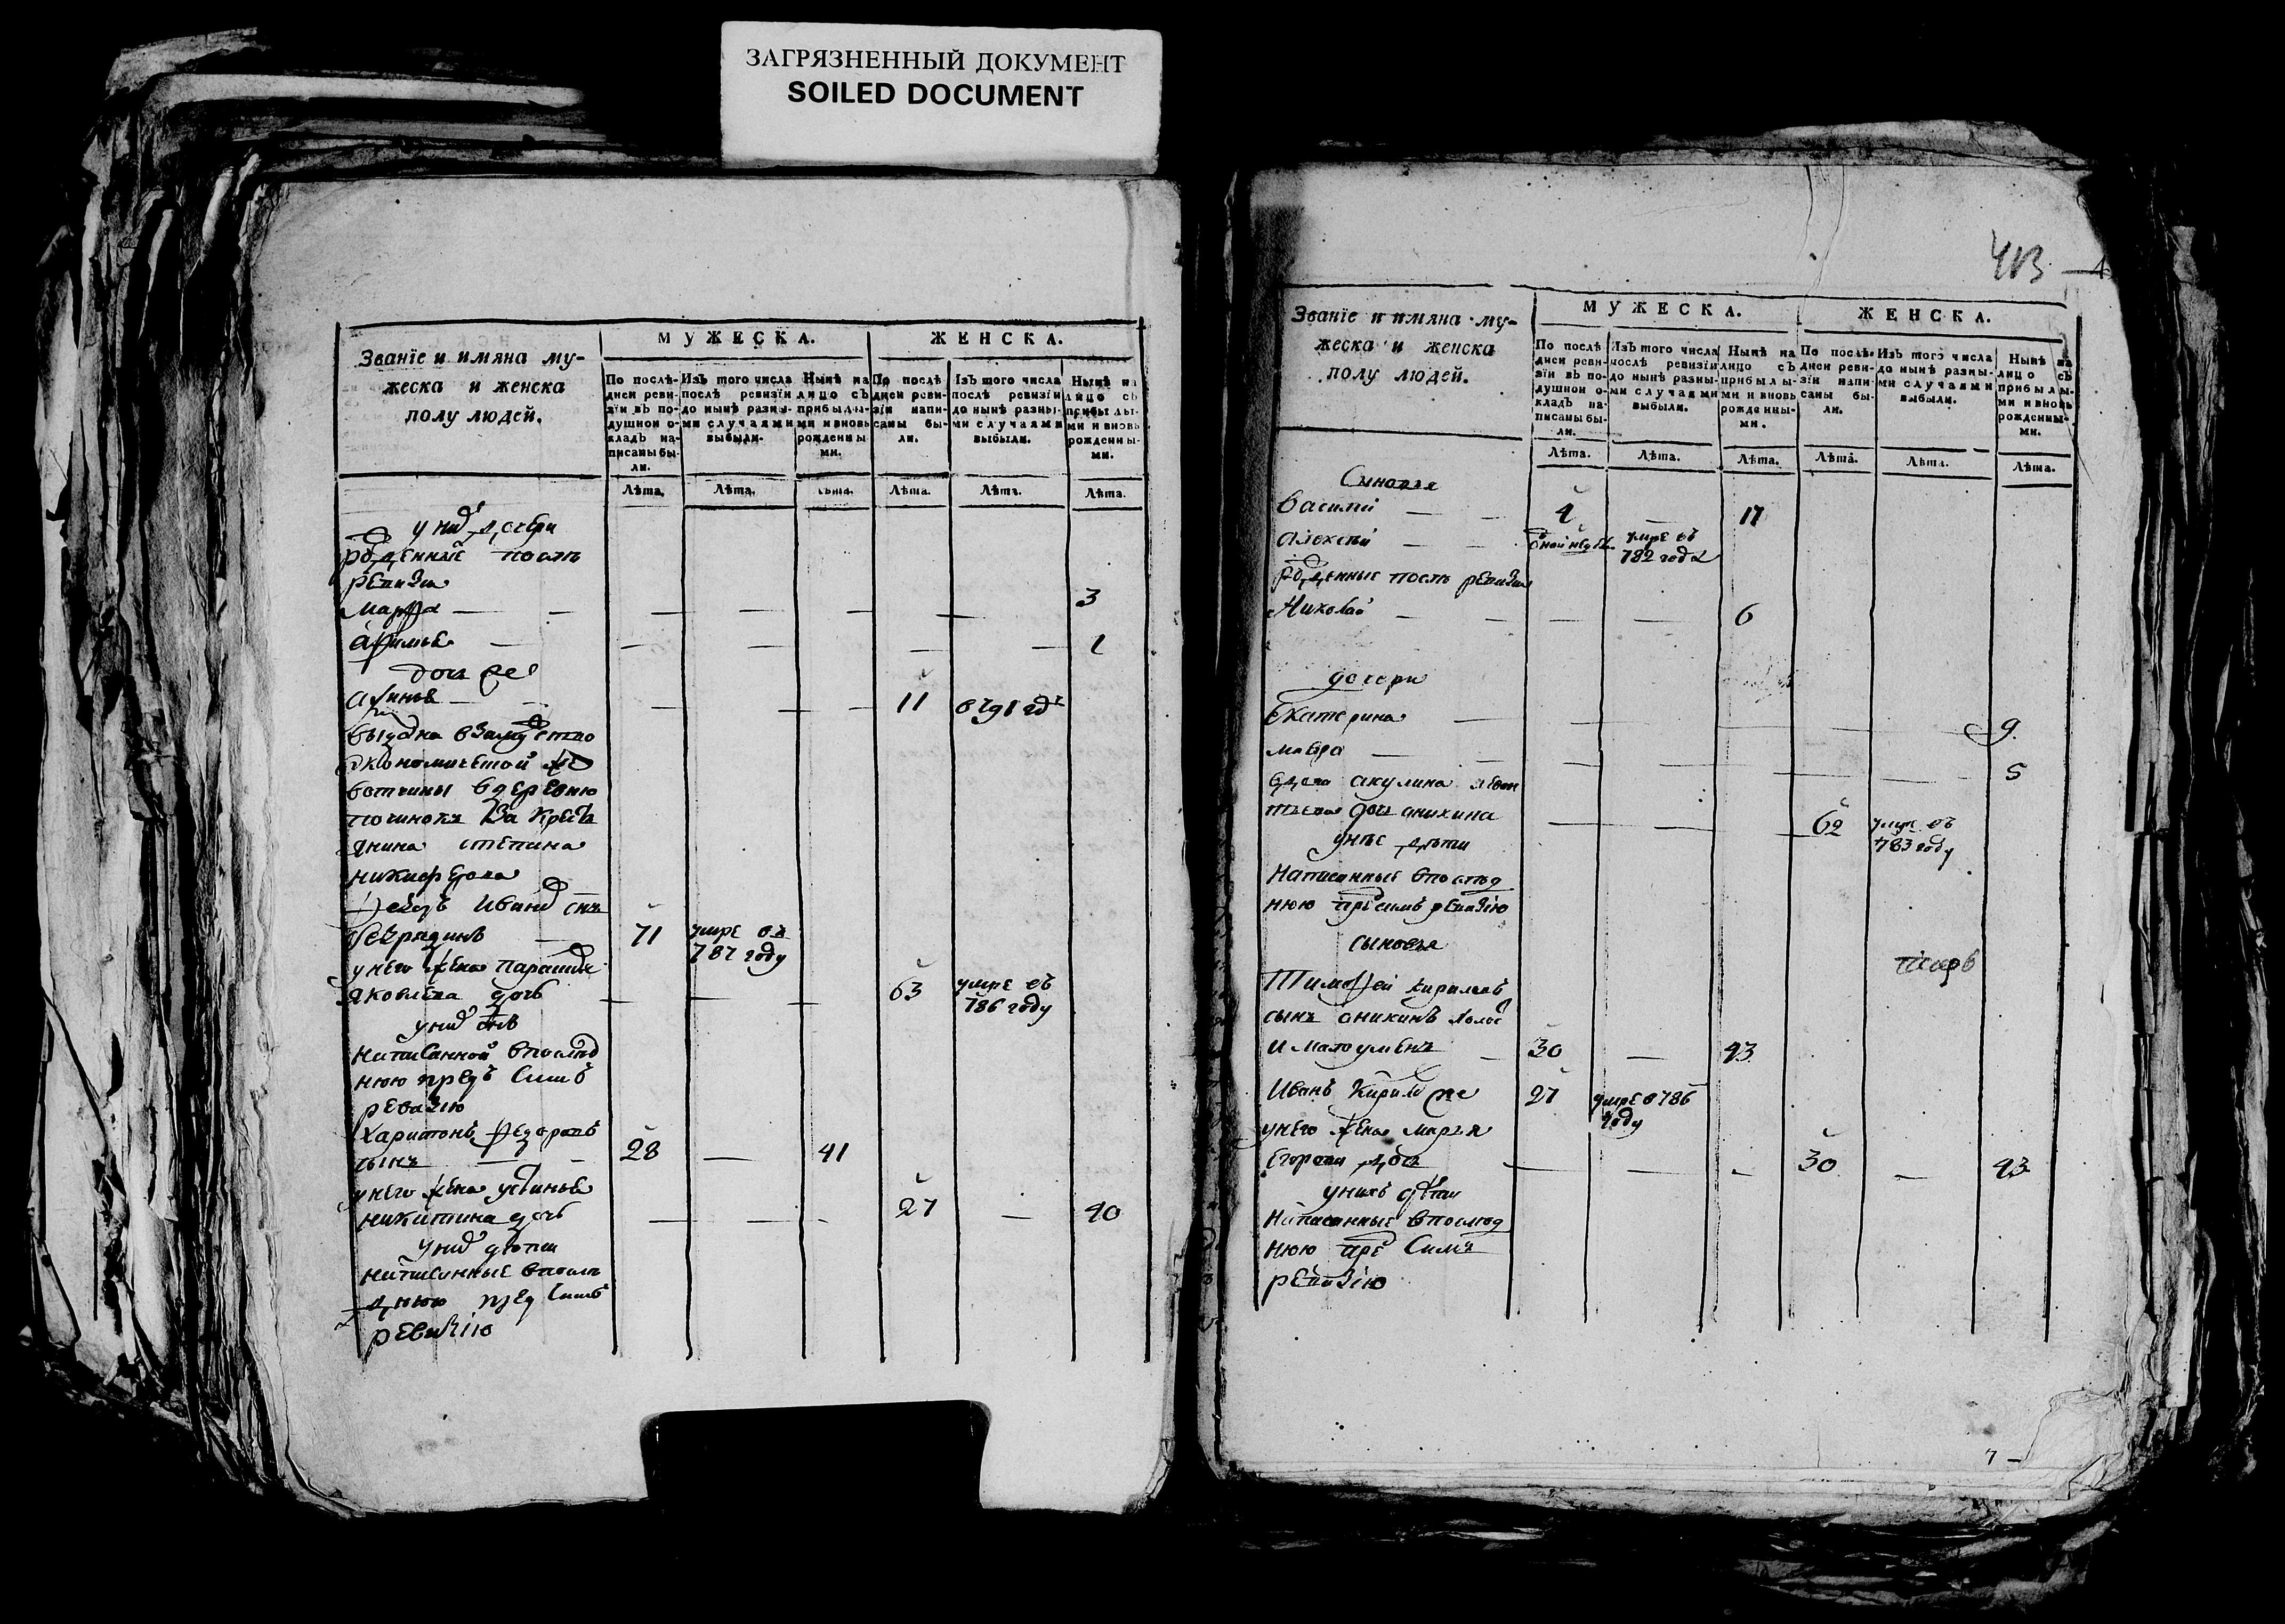 ЗАГРЯЗНЕННЫЙ ДОКУМЕНТ
SOILED DOCUMENT
Званїе и имяна му-
жеска и женска
полу людей.
МУЖЕСКА.
ЖЕНСКА.
По послѣ-
дней реви-
зїи въ по-
душной о-
кладъ на-
писаны бы-
ли.
Изъ того числа
послѣ ревизїи
до нынѣ разны-
ми случаями
выбыли.
Нынѣ на
лицо съ
прибылы-
ми и вновь
рожденны
ми.
По послѣ
дней реви-
зїи напи-
саны бы-
ли.
Изъ того числа
послѣ ревизїи
до нынѣ разны-
ми случаями
выбыли.
Нынѣ на
лицо съ
прибылы-
ми и вновь
рожденны-
ми.
Лѣта. Лѣта. Лѣта. Лѣта. Лѣта. Лѣта.
у них дочери
рожденные послѣ
ревизiи
Марфа 3
Афимья 1
11
выдана взамужство
вотчины в деревню
починокъ за крестья
янина степана
никифорова
Федоръ Ивановъ снъ
71 умре въ
787 году
у него жена Парасковья
Яковлева дочь 63 умре въ
786 году
написанной впослѣд
нюю предъ симъ
ревизiю
Харитонъ Федоровъ
сынъ 28 41
у него жена устинья
никитина дочь 27 40
у них дѣти
написанные впослѣ
днюю пред симъ
ревизiю
413
Званїе и имяна му-
жеска и женска
полу людей.
МУЖЕСКА.
ЖЕНСКА.
По послѣ
дней реви-
зїи въ по-
душной о-
кладъ на-
писаны бы-
ли.
Изъ того числа
послѣ ревизїи
до нынѣ разны-
ми случаями
выбыли.
Нынѣ на
лицо съ
прибылы-
ми и вновь
рожденны-
ми.
По послѣ-
дней реви-
зїи напи-
саны бы-
ли.
Изъ того числа
до нынѣ разны-
ми случаями
выбыли.
Нынѣ на
лицо съ
прибылы-
ми и вновь
рожденны-
ми.
Лѣта. Лѣта. Лѣта. Лѣта. Лѣта. Лѣта.
Сыновья
Василей 4 17
Алексей умре въ
782 году
рожденные послѣ ревизiи
Николай 6
дочери
Екатерина 9
мавра 5
вдова акулина
дочь аникина 62 умре въ
783 году
у нее дѣти
Написанные впослѣд
нюю пред симъ ревизiю
сыновья
Тимофей кириловъ
сынъ аникинъ холост
и малоуменъ 30 43
Иванъ Кирилов 27 умре в 786
году
у него жена марья
Егорова дочь 30 43
у нихъ дѣти
Написанные впослѣд
нюю пред Симъ
ревизiю
7